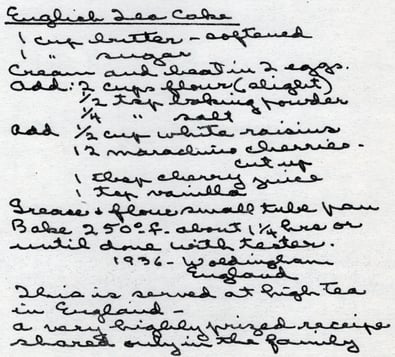 English Tea Cake
1 cup butter - softened
1 " sugar
Cream and beat in 2 eggs.
Add: 2 cups flour (slight)
1/2 tsp baking powder
1/4 " salt
Add 1/2 cup white raisins
12 maraschino cherries -
cut up
1 tbsp cherry juice
1 tsp vanilla
Grease & flour small tube pan
Bake 250°f - about 1 1/4 hrs or
until done with tester.
1936 - Woldingham
England
This is served at high tea
in England -
a very highly prized receipe
shared only in the family